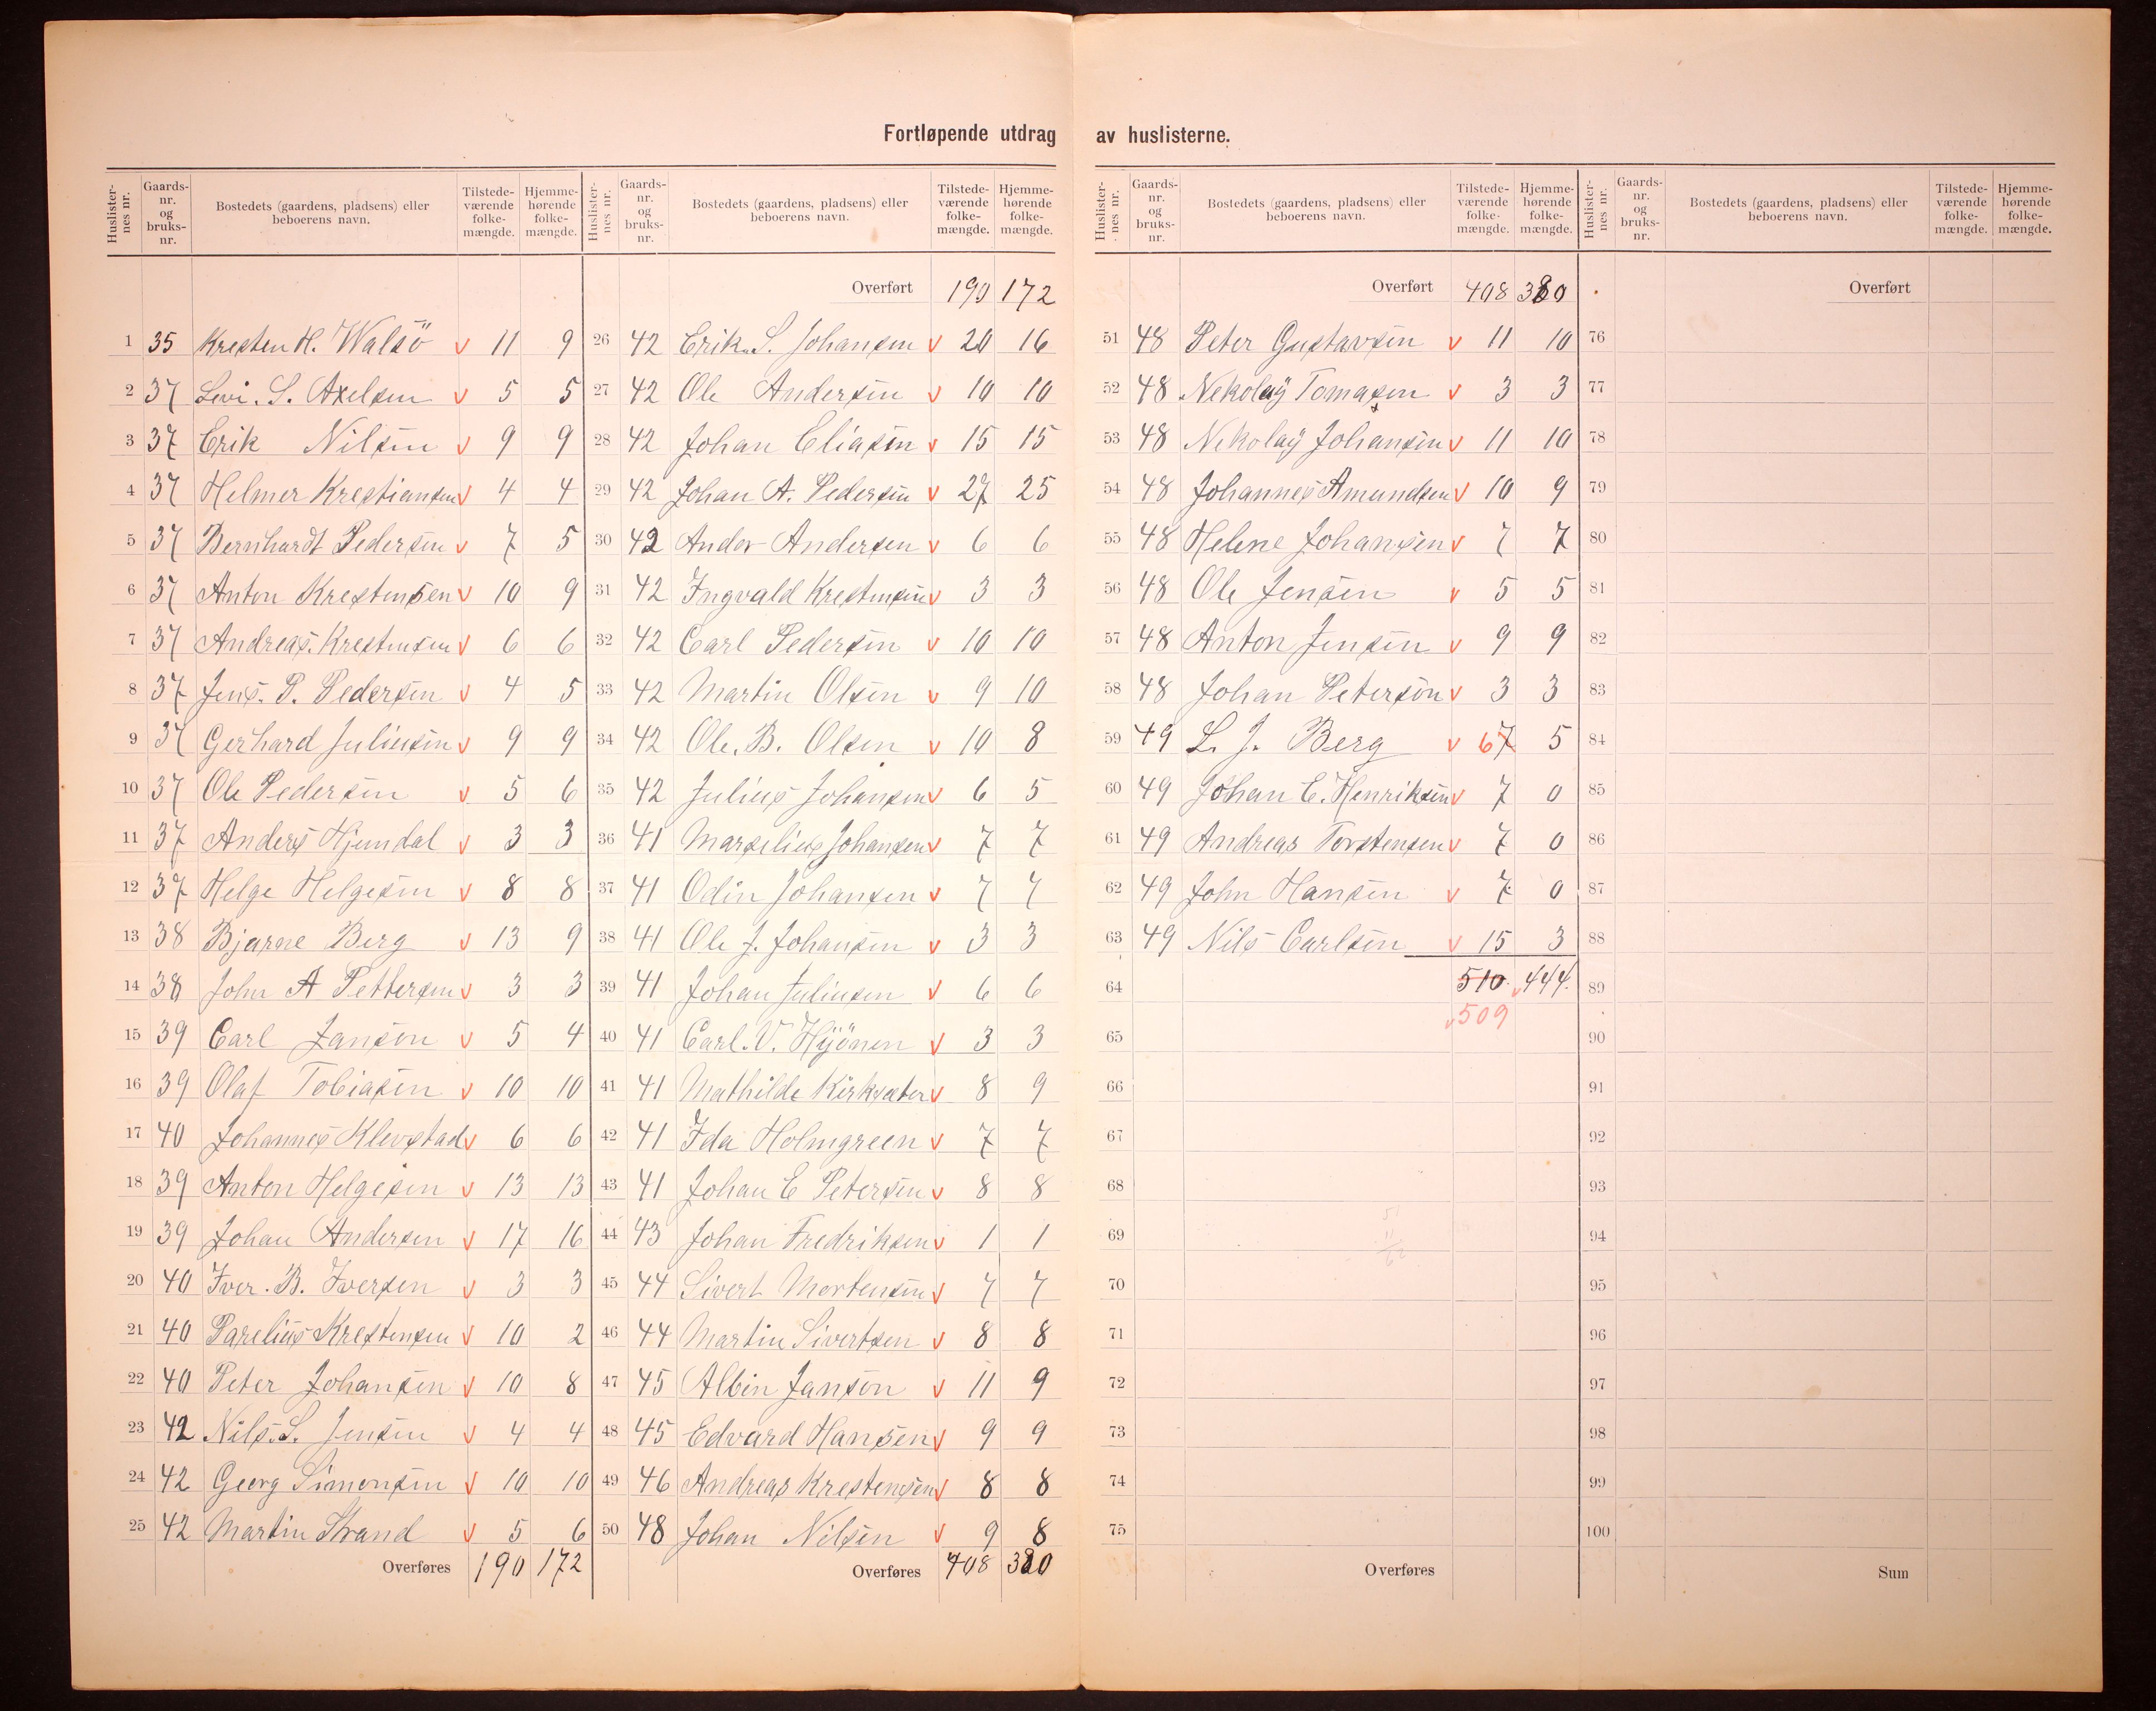 Fortløpende utdrag av huslisterne.
Huslister-nes nr. Gaards-nr. og bruks-nr. Bostedets (gaardens, pladsens) eller beboerens navn. Tilstede-værende folke-mængde. Hjemme-hørende folke-mængde.
1 35 Kresten H. Walsö v 11 9
2 37 Levi. S. Axelsen v 5 5
3 37 Erik Nilsen v 9 9
4 37 Helmer Krestiansen v 4 4
5 37 Bernhardt Pedersen v 7 5
6 37 Anton Krestensen v 10 9
7 37 Andreas. Krestensen v 6 6
8 37 Jens. P. Pedersen v 4 5
9 37 Gerhard Juliusen v 9 9
10 37 Ole Pedersen v 5 6
11 37 Anders Hjemdal v 3 3
12 37 Helge Helgesen v 8 8
13 38 Bjarne Berg v 13 9
14 38 John A Pettersen v 3 3
15 39 Carl Janson v 5 4
16 39 Olaf Tobiasen v 10 10
17 40 Johannes Klevstad v 6 6
18 39 Anton Helgesen v 13 13
19 39 Johan Andersen v 17 16
20 40 Iver. B. Iversen v 3 3
21 40 Parelius Krestensen v 10 2
22 40 Peter Johansen v 10 8
23 42 Nils. S. Jensen v 4 4
24 42 Georg Simonsen v 10 10
25 42 Martin Strand v 5 6
Overføres 190 172
Huslister-nes nr. Gaards-nr. og bruks-nr. Bostedets (gaardens, pladsens) eller beboerens navn. Tilstede-værende folke-mængde. Hjemme-hørende folke-mængde.
Overført 190 172
26 42 Erik. S. Johansen v 20 16
27 42 Ole Andersen v 10 10
28 42 Johan Eliasen v 15 15
29 42 Johan A. Pedersen v 27 25
30 42 Andor Andersen v 6 6
31 42 Ingvald Krestensen v 3 3
32 42 Carl Pedersen v 10 10
33 42 Martin Olsen v 9 10
34 42 Ole. B. Olsen v 10 8
35 42 Julius Johansen v 6 5
36 41 Marselius Johansen v 7 7
37 41 Odin Johansen v 7 7
38 41 Ole J. Johansen v 3 3
39 41 Johan Juliusen v 6 6
40 41 Carl. V. Hyönen v 3 3
41 41 Mathilde Kirksæter v 8 9
42 41 Ida Holmgreen v 7 7
43 41 Johan E Petersen v 8 8
44 43 Johan Fredriksen v 1 1
45 44 Sivert Mortensen v 7 7
46 44 Martin Sivertsen v 8 8
47 45 Albin Janson v 11 9
48 45 Edvard Hansen v 9 9
49 46 Andreas Krestensen v 8 8
50 48 Johan Nilsen v 9 8
Overføres 408 380
Huslister-nes nr. Gaards-nr. og bruks-nr. Bostedets (gaardens, pladsens) eller beboerens navn. Tilstede-værende folke-mængde. Hjemme-hørende folke-mængde.
Overført 408 380
51 48 Peter Gustavsen v 11 10
52 48 Nekolaÿ Tomasen v 3 3
53 48 Nekolaÿ Johansen v 11 10
54 48 Johannes Amundsen v 10 9
55 48 Helene Johansen v 7 7
56 48 Ole Jensen v 5 5
57 48 Anton Jensen v 9 9
58 48 Johan Peterson v 3 3
59 49 L. J. Berg v 6 7 5
60 49 Johan E. Henriksen v 7 0
61 49 Andreas Torstensen v 7 0
62 49 John Hansen v 7 0
63 49 Nils Carlsen v 15 3
64 510. v 444.
v 509
65
66
67
68
69
70
71
72
73
74
75
Overføres
Huslister-nes nr. Gaards-nr. og bruks-nr. Bostedets (gaardens, pladsens) eller beboerens navn. Tilstede-værende folke-mængde. Hjemme-hørende folke-mængde.
Overført
76
77
78
79
80
81
82
83
84
85
86
87
88
89
90
91
92
93
94
95
96
97
98
99
100
Sum